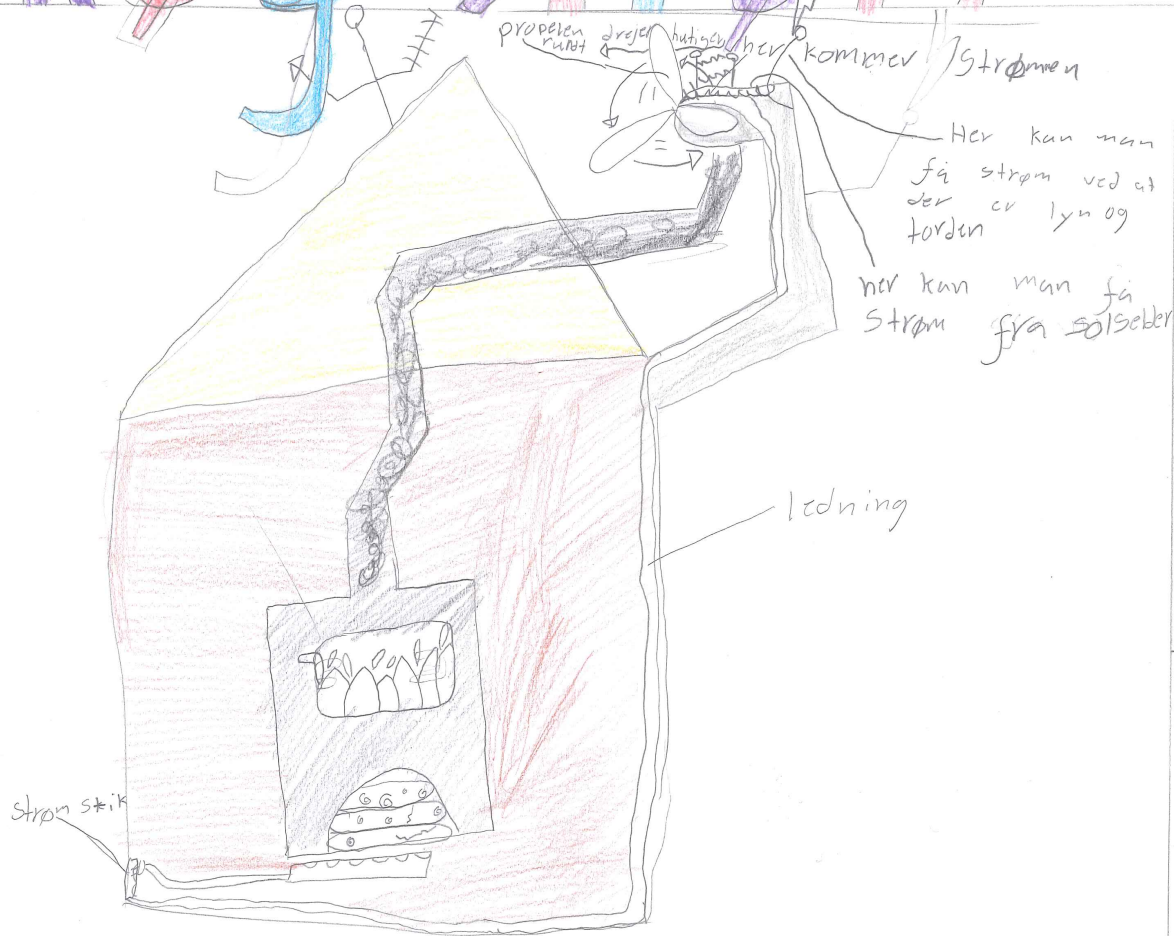 propelen drejer hutiger
rundt
her kommer strømmen
Her kan man
få strøm ved at
der er lyn og
torden
her kan man få
strøm fra solseller
ledning
strøm stik